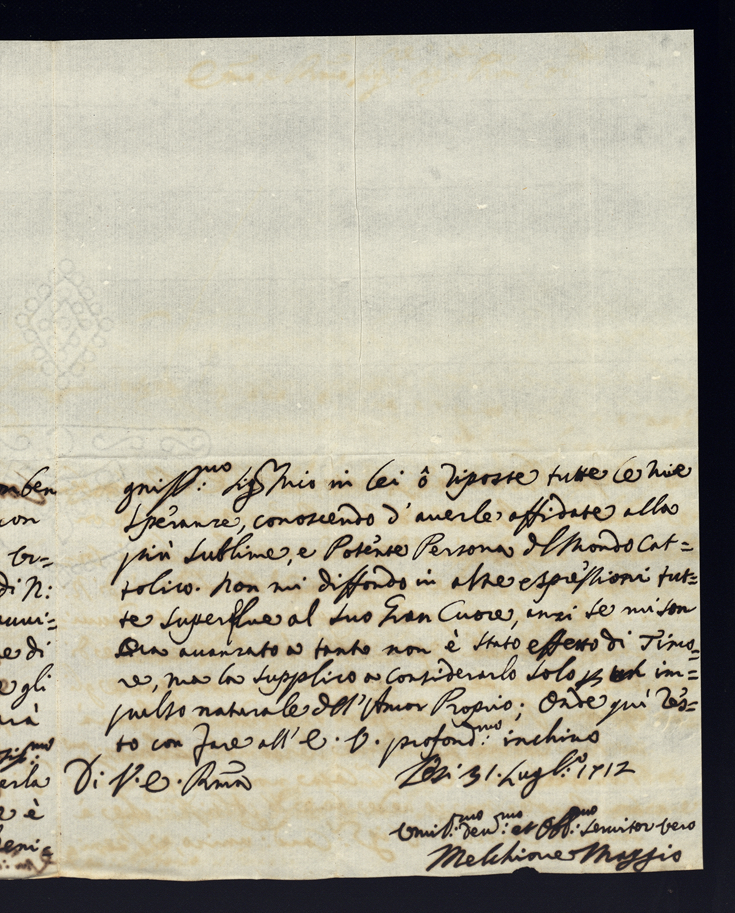 gniss:mo Sig:r Mio in lei ô riposte tutte le mie
speranze, conoscendo d'auerle affidate alla
più sublime, e Potente Persona del Mondo Cat=
tolico. Non mi diffondo in altre espressioni tut=
te superflue al suo Gran Cuore, anzi se mi son
auanzato a tanto non è stato effetto di Timo=
re, ma la supplico a considerarlo solo p un im=
pulso naturale dell'Amor Proprio; Onde quì res=
to con fare all'E. V. profond:mo inchino
Di V. E. Rma
31. Lugl:o 1712
Umil:mo deu:mo et Obb:mo Seruitor vero
Melchione Maggio
ben
con
di N:
e di
e gli
rà
erla
e è